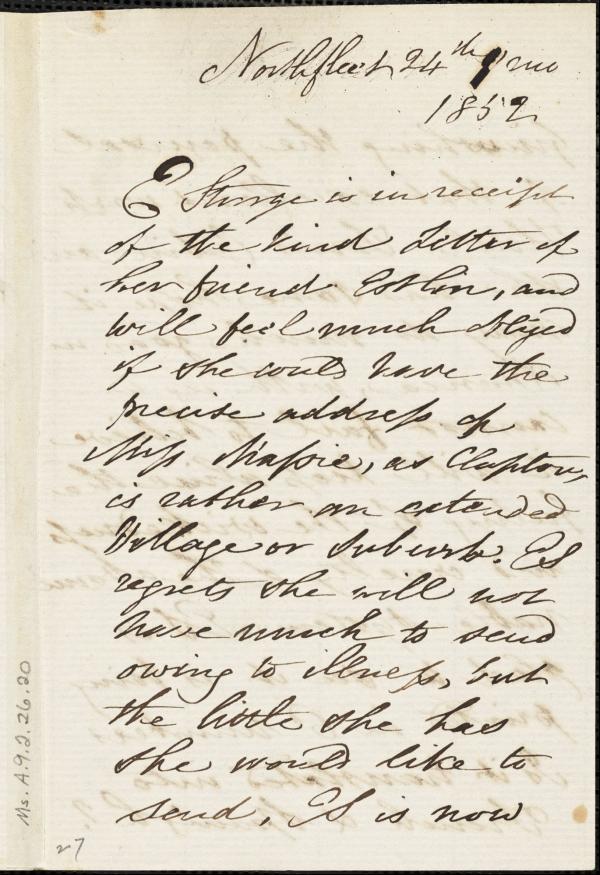 Northfleet 24th 9 mo
1852
E Sturge is in receipt
of the kind Letter of
her friend Estlin, and
will feel much obliged
if she could have the
precise address of
Miss Massie, as Clapton,
is rather an extended
Village or suburb. ES
regrets she will not
have much to send
owing to illness, but
the little she has
she would like to
send, ES is now
Ms. A.9.2.26.80
27